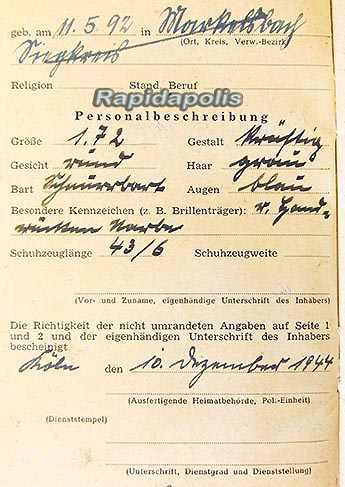 geb. am 11. 5. 92 in Markelsbach
Siegkreis (Ort, Kreis, Verw.-Bezirk)
Religion Stand, Beruf
Rapidapolis
Personalbeschreibung
Größe 1.72 Gestalt kräftig
Gesicht rund Haar grau
Bart Schnurrbart Augen blau
Besondere Kennzeichen (z. B. Brillenträger): r. Hand-
rücken Narbe
Schuhzeuglänge 43/6 Schuhzeugweite
(Vor- und Zuname, eigenhändige Unterschrift des Inhabers)
Die Richtigkeit der nicht umrandeten Angaben auf Seite 1
und 2 und der eigenhändigen Unterschrift des Inhabers
bescheinigt
Köln den 10. Dezember 1944
(Ausfertigende Heimatbehörde, Pol.-Einheit)
(Dienststempel)
(Unterschrift, Dienstgrad und Dienststellung)